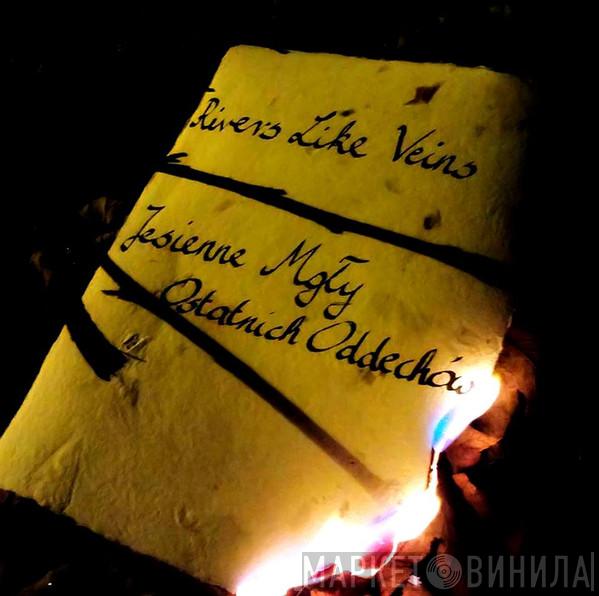 Rivers Like Veins
Jesienne Mgły
Ostatnich Oddechów
МАРКЕТ ВИНИЛА